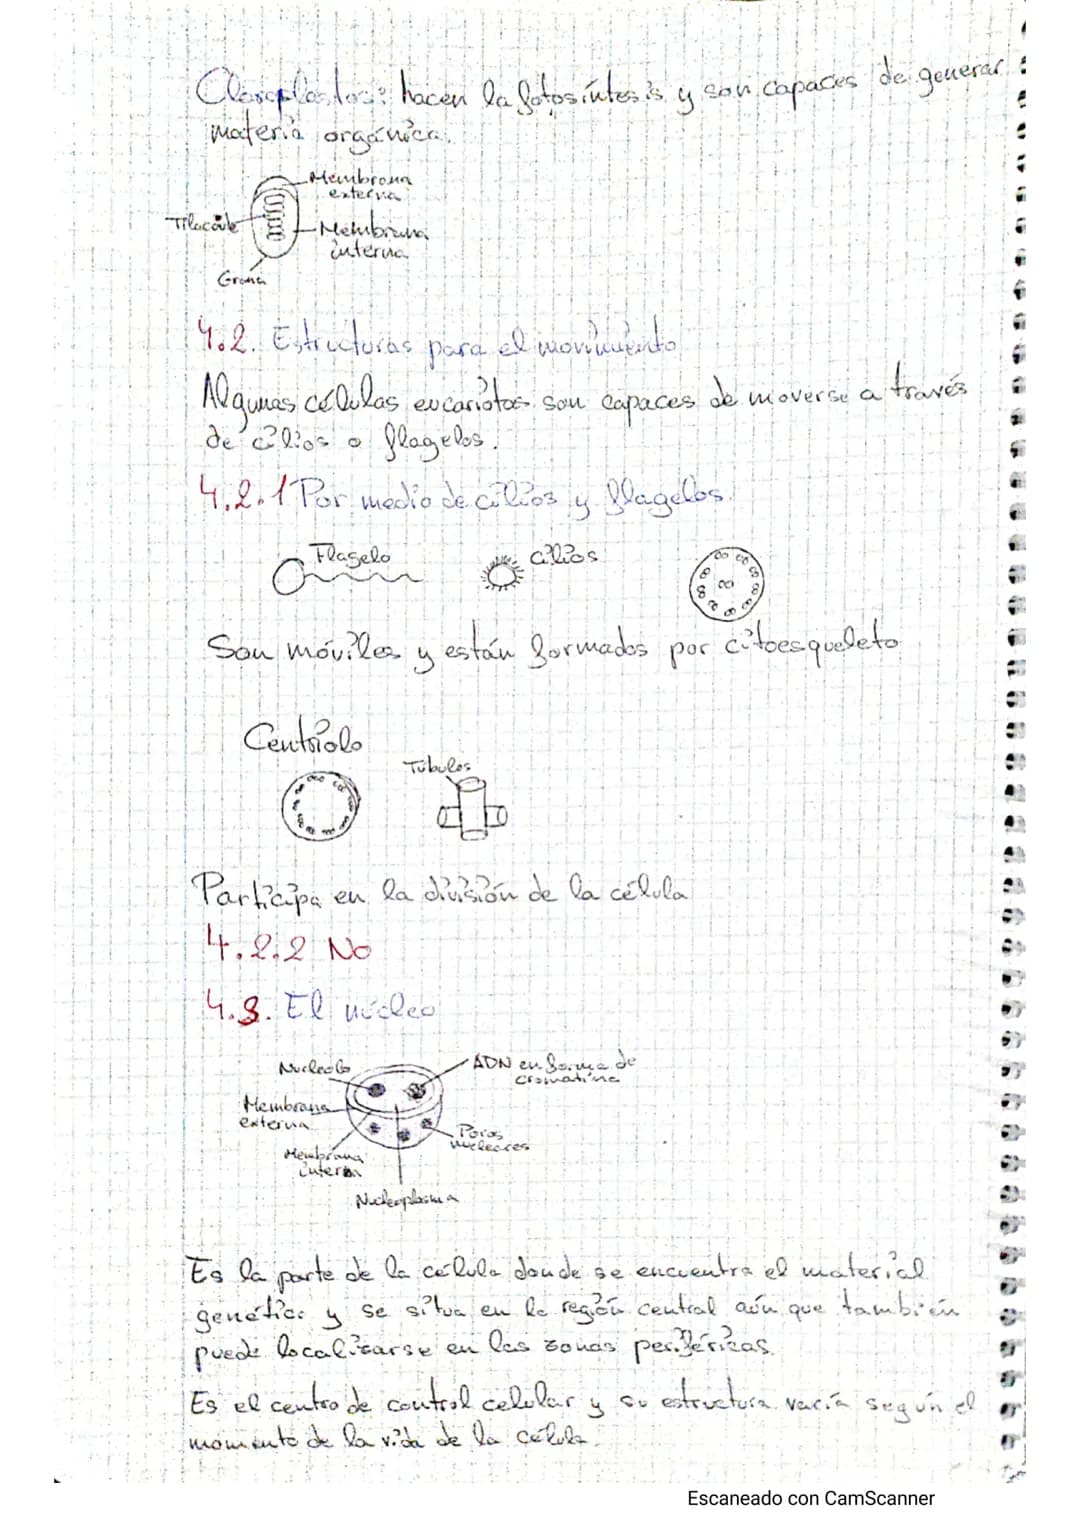 Cloroplastos: hacen la fotosíntesis y son capaces de generar
materia orgánica.
Membrana
externa
Tilacoide
Membrana
interna
Grana
4.2. Estructuras para el movimiento
Algunas células eucariotas son capaces de moverse a través
de cilios o flagelos.
4.2.1 Por medio de cilios y flagelos.
Flagelo
cilios
Son móviles y están formados por citoesqueleto
Centriolo
Túbulos
Participa en la división de la célula
4.2.2 No
4.3. El núcleo
Nucleolo
ADN en forma de
cromatina
Membrana
externa
Poros
nucleares
Membrana
interna
Nucleoplasma
Es la parte de la célula donde se encuentra el material
genético y se situa en la región central aún que también
puede localizarse en las zonas periféricas.
Es el centro de control celular y su estructura varía según el
momento de la vida de la célula.
Escaneado con CamScanner